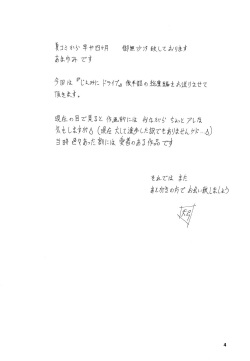 夏コミから早や四ヶ月 御無沙汰致しております
あまゆみ です
今回は『じんみに ドライブ』後半部の総集編をお送りさせて
頂きます。
現在の目で見ると 作画的には 我ながら ちょっとアレな
気もしますが(現在 大して進歩した訳でもありませんケド…)
当時 色々あった割には 愛着のある作品です
それでは また
あとがきの方で お会い致しましょう
4